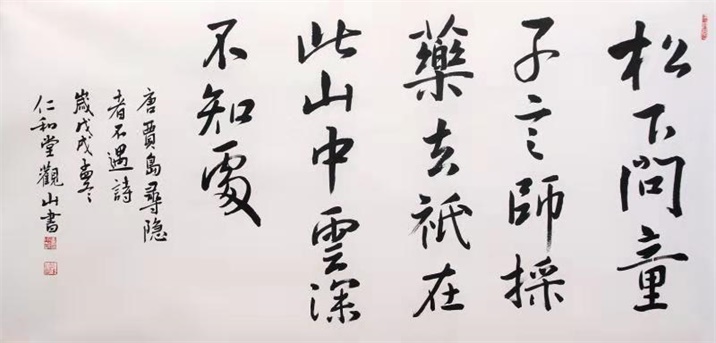 松下問童
子言師採
藥去祇在
此山中雲深
不知處
唐賈島尋隐
者不遇詩
歲戊戌夏
仁和堂觀山書